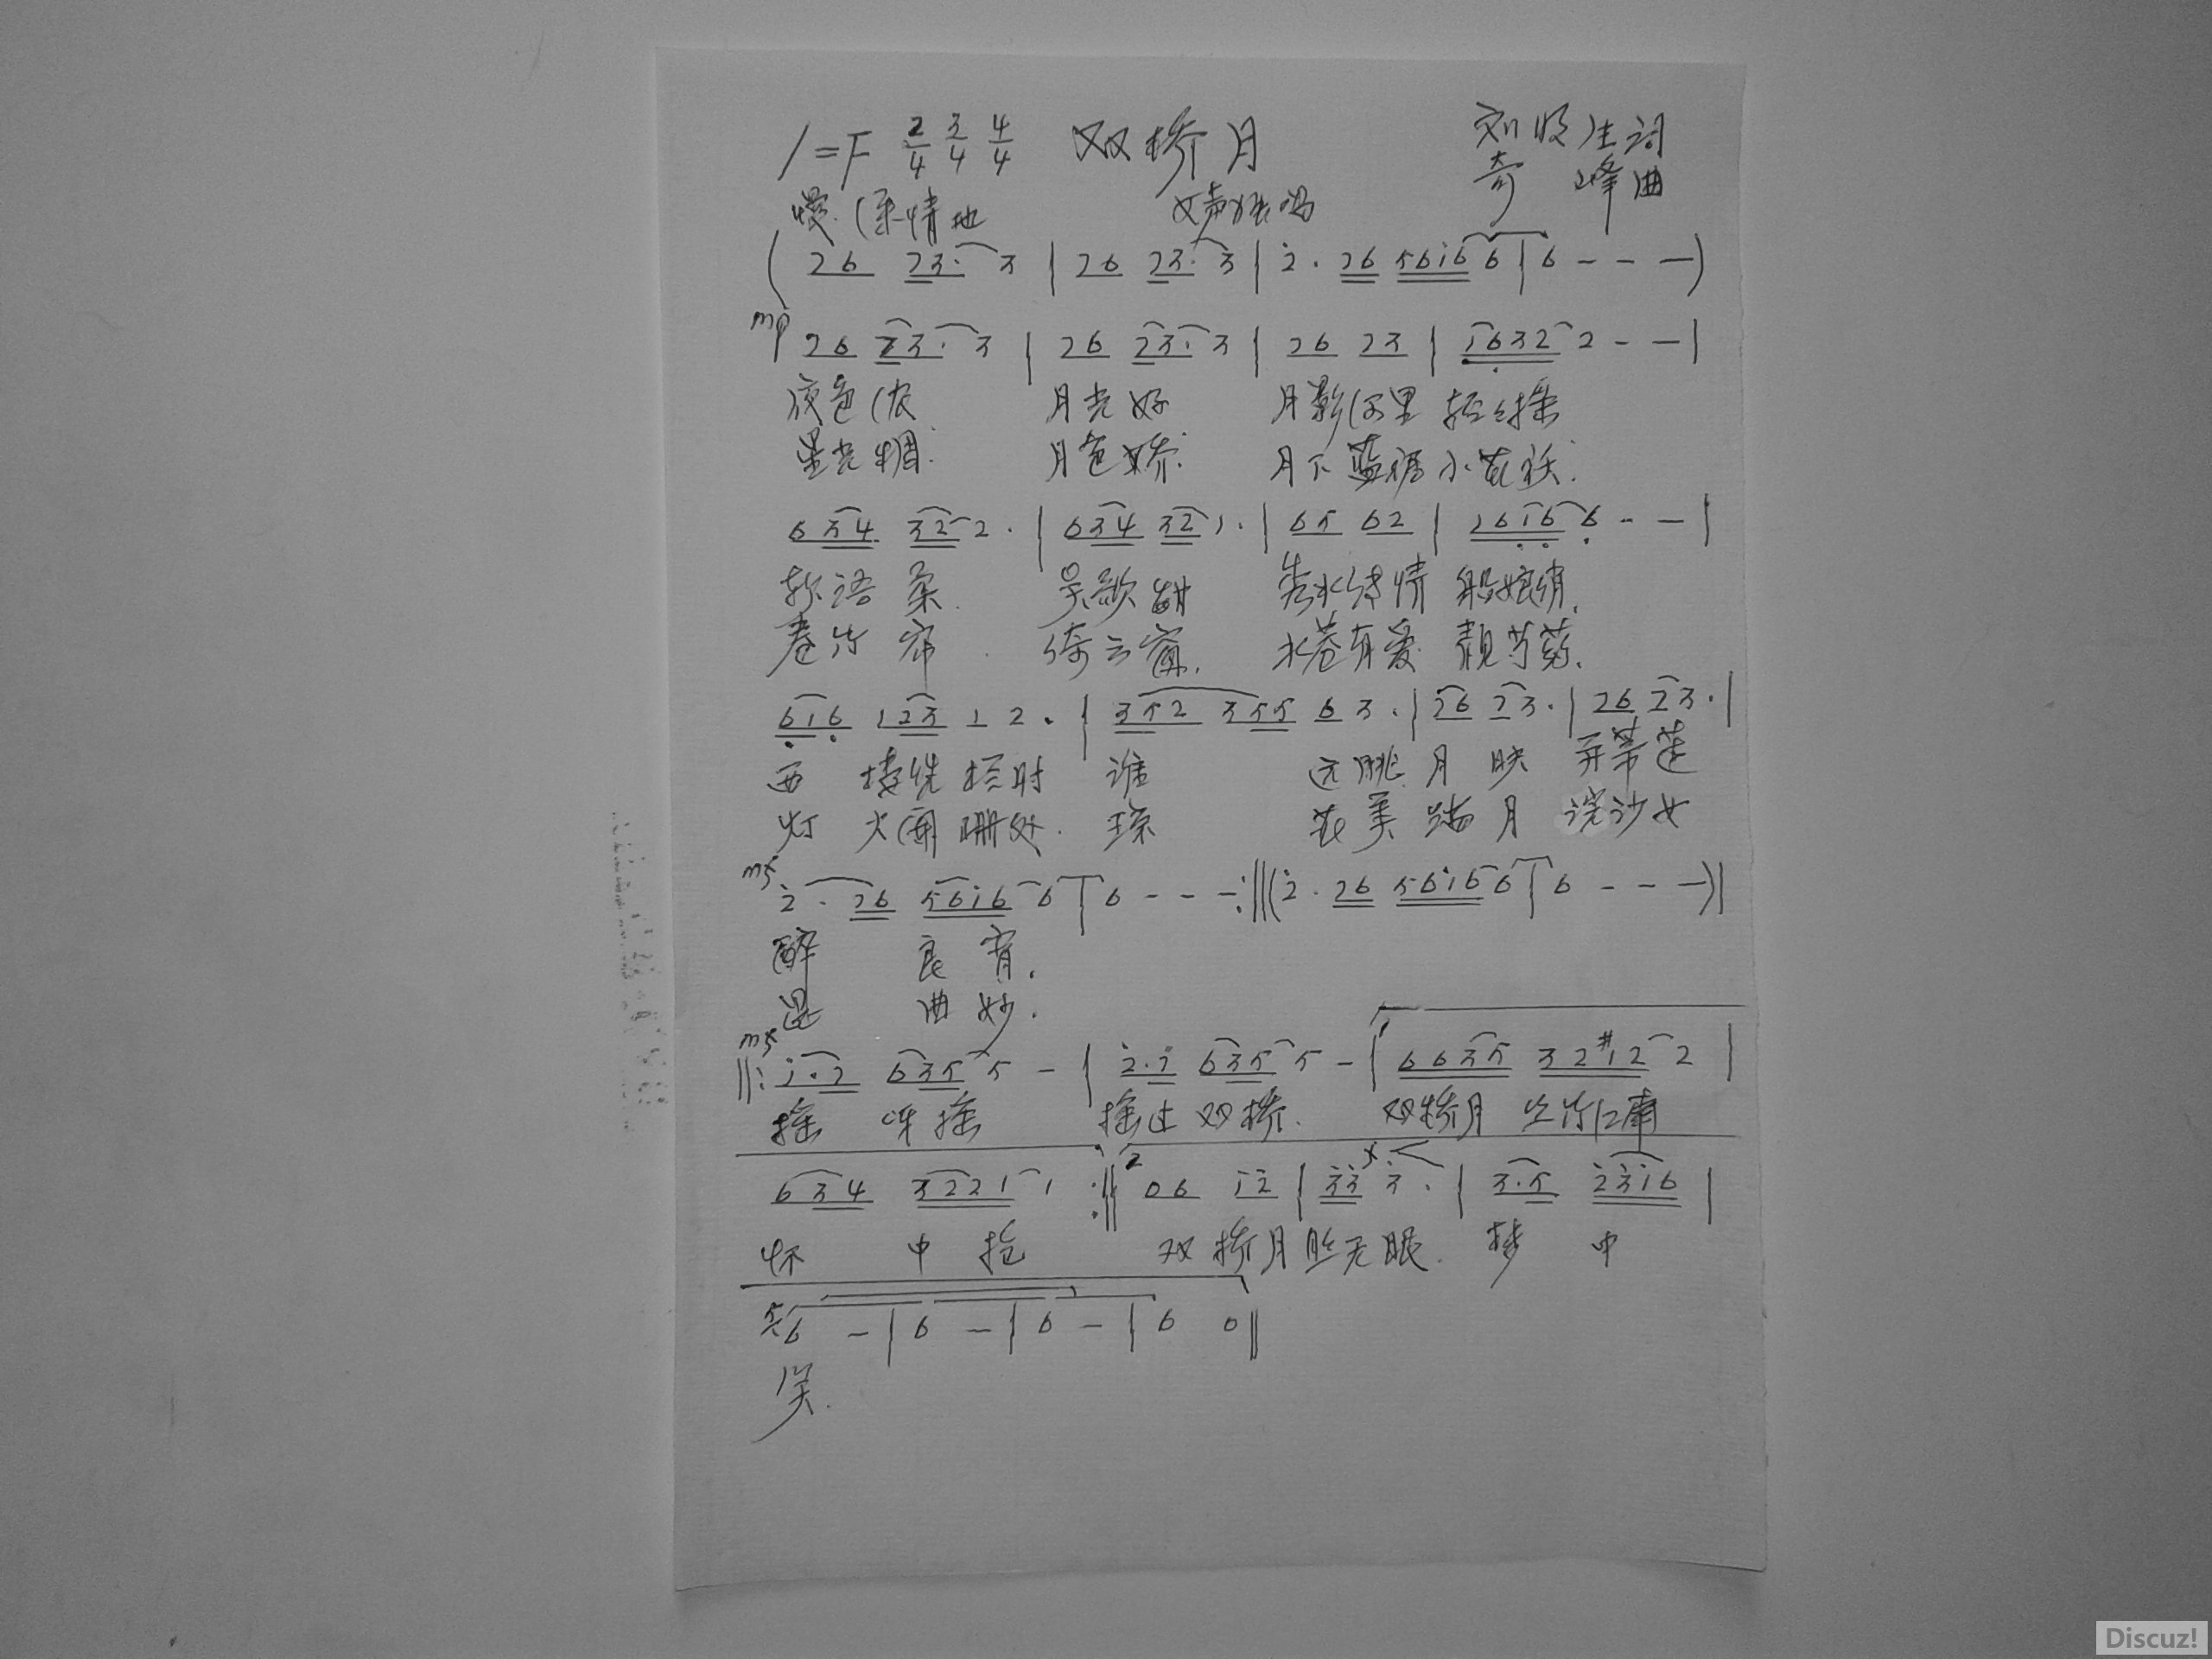 1=F 2/4 3/4 4/4 双桥月 刘 生词
慢 柔情地 女声独唱 奇 峰曲
(26 23· 3 | 26 23· 3 | 2̇· 26 561̇6 6 | 6 - - -)
mp 26 23· 3 | 26 23· 3 | 26 23 | 1632 2 - - |
夜色浓 月光好 月影河里 轻轻摇
星光稠. 月色娇. 月下蓝裙小花袄.
634 322· | 634 321· | 65 62 | 2616 6 - - |
软语柔. 吴歌甜 秀水诗情 船娘俏.
巷竹帘. 倚云窗. 水巷有爱 靓芍药.
616 123 12· | 352 355 63· | 26 23· | 26 23· |
西 楼 时 谁 远眺 月映 并蒂莲
灯 火阑珊处. 琼 花美 踏月 浣沙女
mf 2̇· 26 561̇6 6 | 6 - - - :‖ (2̇· 26 561̇6 6 | 6 - - -) |
醉 良宵.
曲妙.
mf ‖: 1̇·2 635 5 - | 2̇·2̇ 635 5 - | 6635 32#12 2 |
摇 呀摇 摇过双桥. 双桥月 丝竹江南
634 3221 1 :‖ 2 06 1̇2̇ | 3̇3̇ 3̇· | 3·5 2̇3̇1̇6 |
怀 中抱 双桥月 无眠. 梦 中
56 - | 6 - | 6 - | 6 0 ‖
笑.
Discuz!